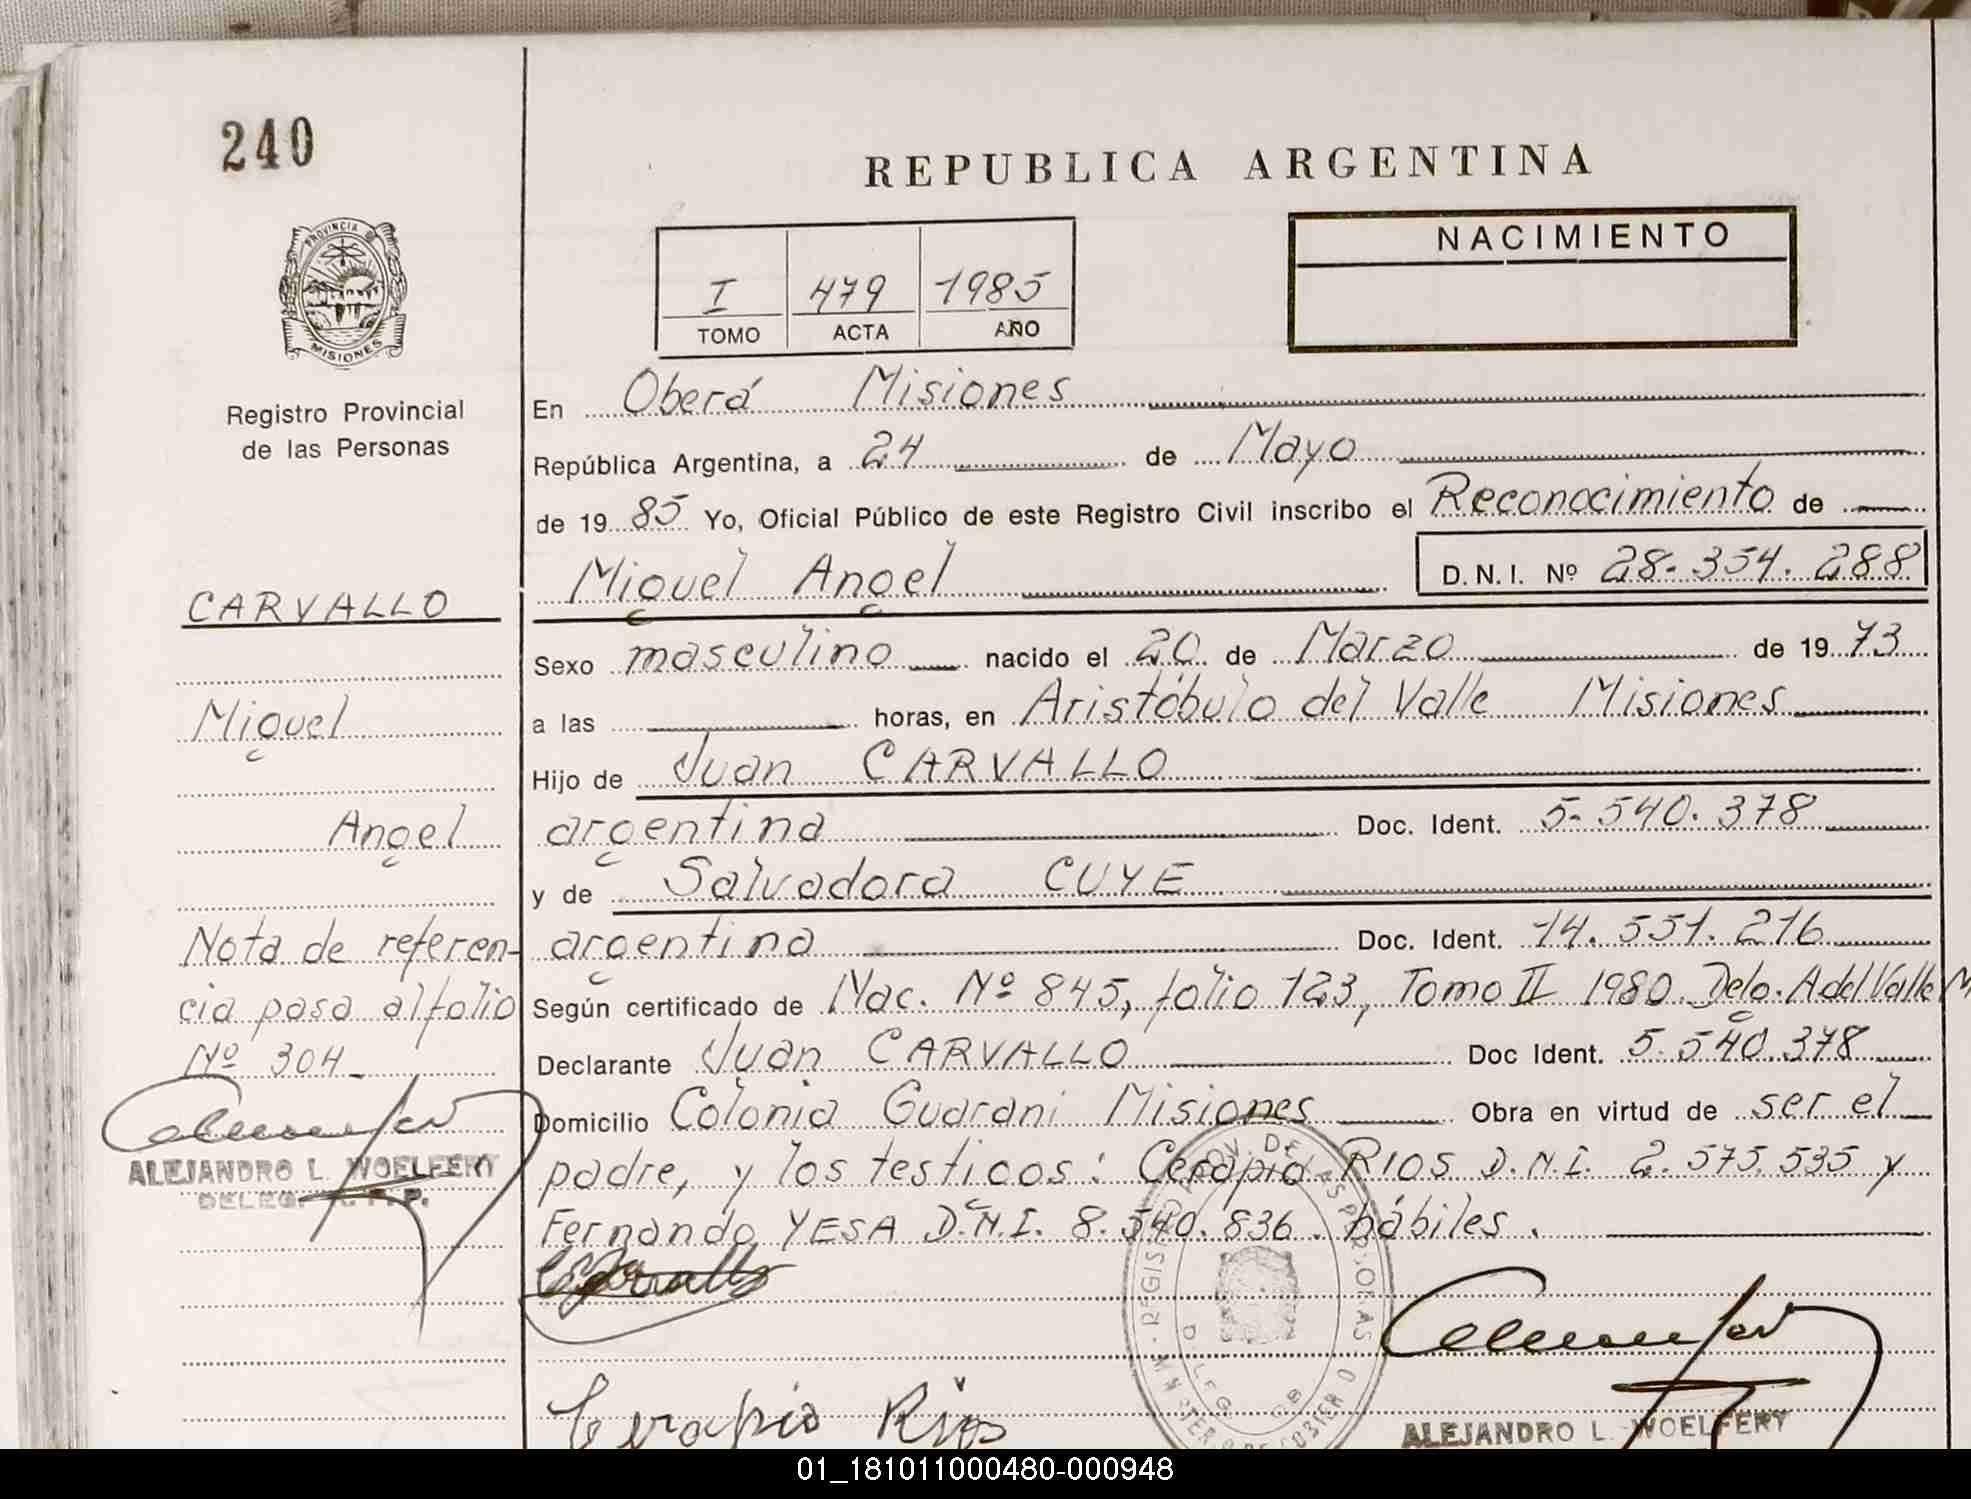 240
REPUBLICA ARGENTINA
PROVINCIA DE
MISIONES
Registro Provincial
de las Personas
I 479 1985
TOMO ACTA AÑO
NACIMIENTO
En Oberá Misiones
República Argentina, a 24 de Mayo
de 19 85 Yo, Oficial Público de este Registro Civil inscribo el Reconocimiento de
Miguel Angel D.N.I. Nº 28.354.288
CARVALLO
Sexo masculino nacido el 20 de Marzo de 19 73
Miguel
a las horas, en Aristóbulo del Valle Misiones
Hijo de Juan CARVALLO
Angel
argentina Doc. Ident. 5.540.378
y de Salvadora CUYE
Nota de referen-
argentina Doc. Ident. 14.551.216
cia pasa al folio
Según certificado de Nac. Nº 845, folio 123, Tomo II 1980 Delg. A del Valle M
Nº 304
Declarante Juan CARVALLO Doc Ident. 5.540.378
Domicilio Colonia Guarani Misiones Obra en virtud de ser el
ALEJANDRO L. WOELFERY
DELEG. R.P.P.
padre, y los testigos: Cerapio RIOS D.N.I. 2.575.535 y
Fernando YESA D.N.I. 8.540.836. hábiles.
Cerapio Rios
ALEJANDRO L. WOELFERY
01_181011000480-000948